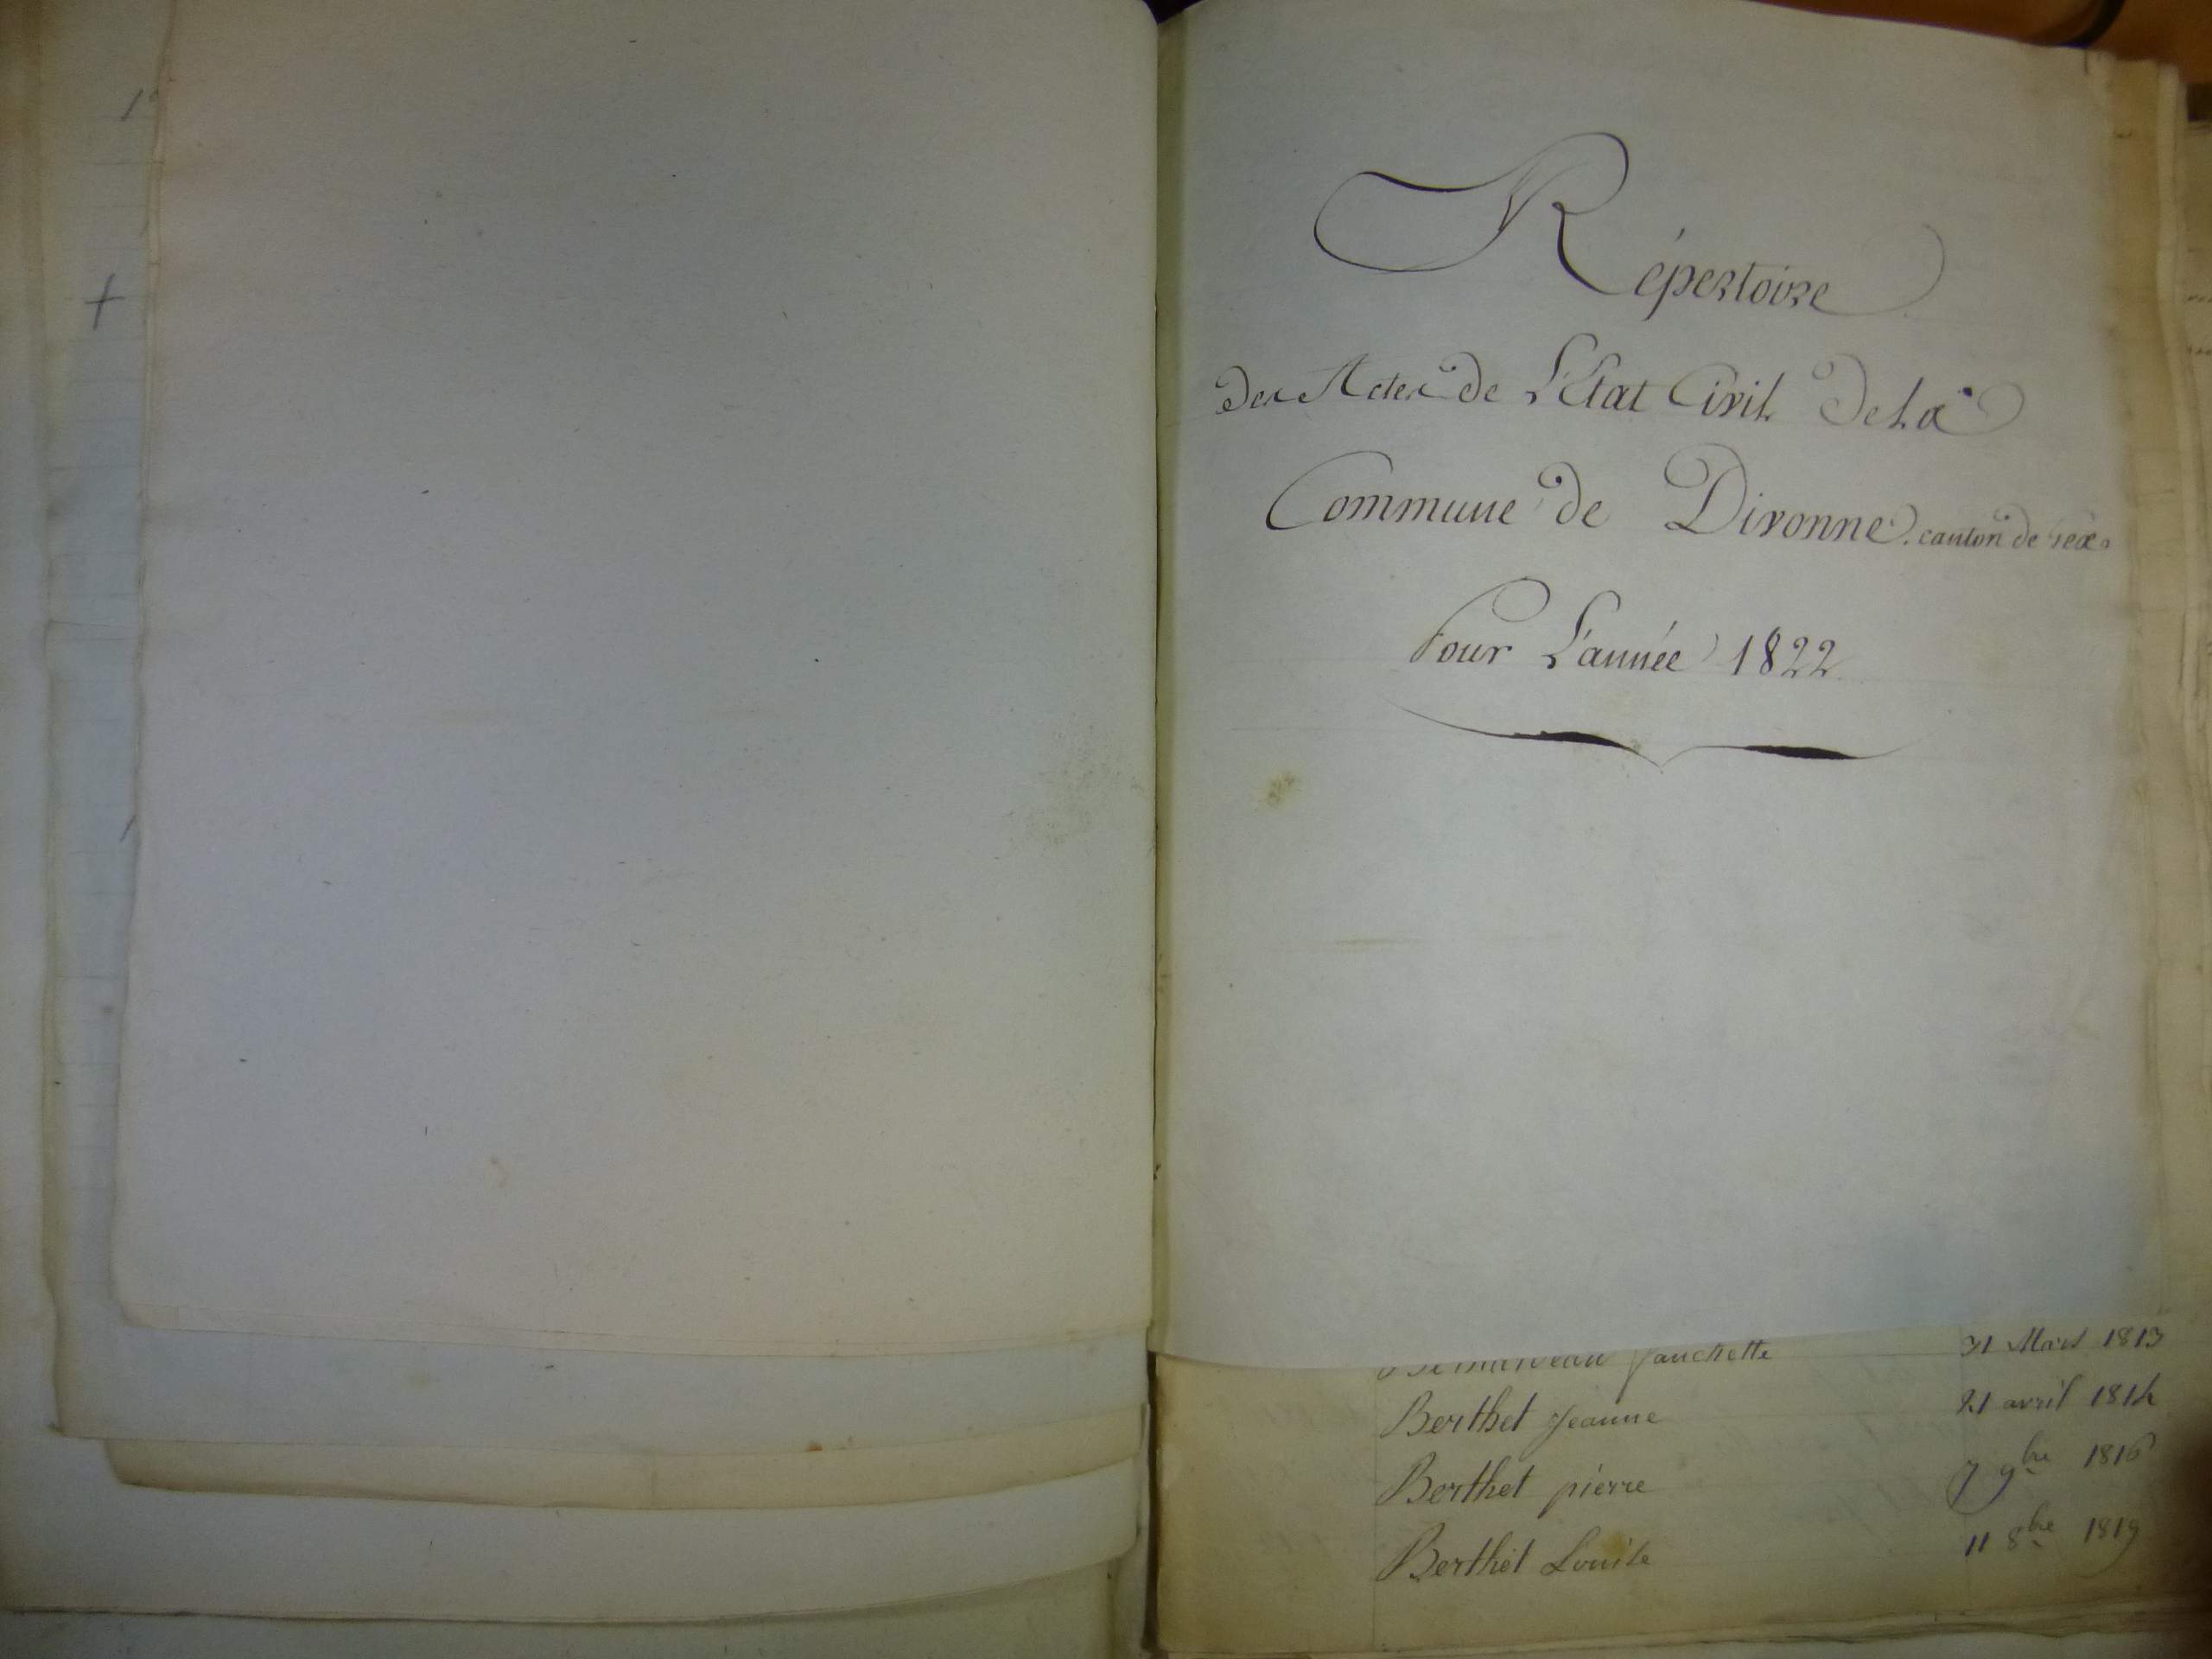 Répertoire
Des Actes de L'Etat Civil De La
Commune de Divonne. canton de Gex.
Pour L'année 1822.
fanchette 31 Mars 1813
Berthet jeanne 21 avril 1814
Berthet pierre 7 9bre 1816
Berthet Louise 11 8bre 1819